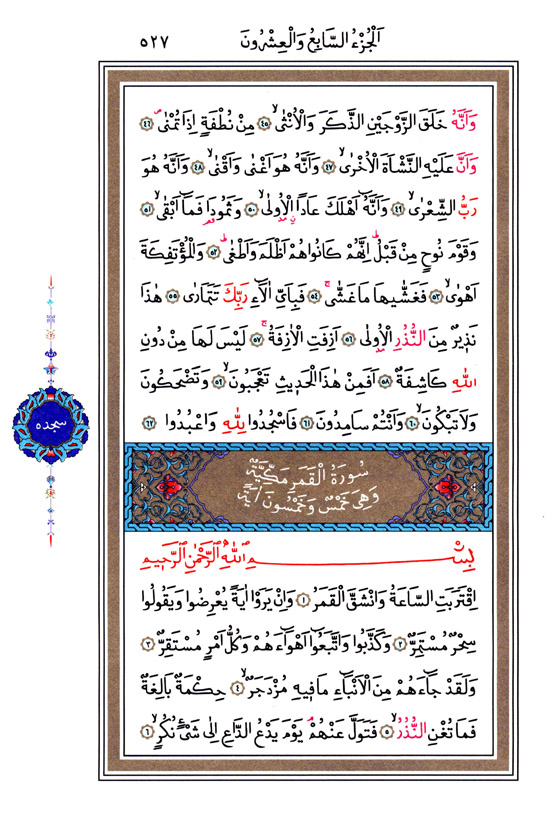 اَلْجُزْءُ السَّابِعُ وَالْعِشْرُونَ
٥٢٧
وَاَنَّهُ خَلَقَ الزَّوْجَيْنِ الذَّكَرَ وَالْاُنْثٰىۙ ﴿٤٥﴾ مِنْ نُطْفَةٍ اِذَا تُمْنٰىۖ ﴿٤٦﴾
وَاَنَّ عَلَيْهِ النَّشْاَةَ الْاُخْرٰىۙ ﴿٤٧﴾ وَاَنَّهُ هُوَ اَغْنٰى وَاَقْنٰىۙ ﴿٤٨﴾ وَاَنَّهُ هُوَ
رَبُّ الشِّعْرٰىۙ ﴿٤٩﴾ وَاَنَّهُٓ اَهْلَكَ عَادًاۨ الْاُو۫لٰىۙ ﴿٥٠﴾ وَثَمُودَا۬ فَمَٓا اَبْقٰىۙ ﴿٥١﴾
وَقَوْمَ نُوحٍ مِنْ قَبْلُۜ اِنَّهُمْ كَانُوا هُمْ اَظْلَمَ وَاَطْغٰىۜ ﴿٥٢﴾ وَالْمُؤْتَفِكَةَ
اَهْوٰىۙ ﴿٥٣﴾ فَغَشّٰيهَا مَا غَشّٰىۚ ﴿٥٤﴾ فَبِاَيِّ اٰلَٓاءِ رَبِّكَ تَتَمَارٰى ﴿٥٥﴾ هٰذَا
نَذِيرٌ مِنَ النُّذُرِ الْاُو۫لٰى ﴿٥٦﴾ اَزِفَتِ الْاٰزِفَةُۚ ﴿٥٧﴾ لَيْسَ لَهَا مِنْ دُونِ
اللّٰهِ كَاشِفَةٌۜ ﴿٥٨﴾ اَفَمِنْ هٰذَا الْحَدِيثِ تَعْجَبُونَۙ ﴿٥٩﴾ وَتَضْحَكُونَ
وَلَا تَبْكُونَۙ ﴿٦٠﴾ وَاَنْتُمْ سَامِدُونَ ﴿٦١﴾ فَاسْجُدُوا لِلّٰهِ وَاعْبُدُوا ﴿٦٢﴾
سجده
سُورَةُ الْقَمَرِ مَكِّيَّةٌ
وَهِيَ خَمْسٌ وَخَمْسُونَ اٰيَةً
بِسْمِ اللّٰهِ الرَّحْمٰنِ الرَّحِيمِ
اِقْتَرَبَتِ السَّاعَةُ وَانْشَقَّ الْقَمَرُ ﴿١﴾ وَاِنْ يَرَوْا اٰيَةً يُعْرِضُوا وَيَقُولُوا
سِحْرٌ مُسْتَمِرٌّ ﴿٢﴾ وَكَذَّبُوا وَاتَّبَعُٓوا اَهْوَٓاءَهُمْ وَكُلُّ اَمْرٍ مُسْتَقِرٌّ ﴿٣﴾
وَلَقَدْ جَٓاءَهُمْ مِنَ الْاَنْبَٓاءِ مَا فِيهِ مُزْدَجَرٌۙ ﴿٤﴾ حِكْمَةٌ بَالِغَةٌ
فَمَا تُغْنِ النُّذُرُۙ ﴿٥﴾ فَتَوَلَّ عَنْهُمْۢ يَوْمَ يَدْعُ الدَّاعِ اِلٰى شَيْءٍ نُكُرٍۙ ﴿٦﴾